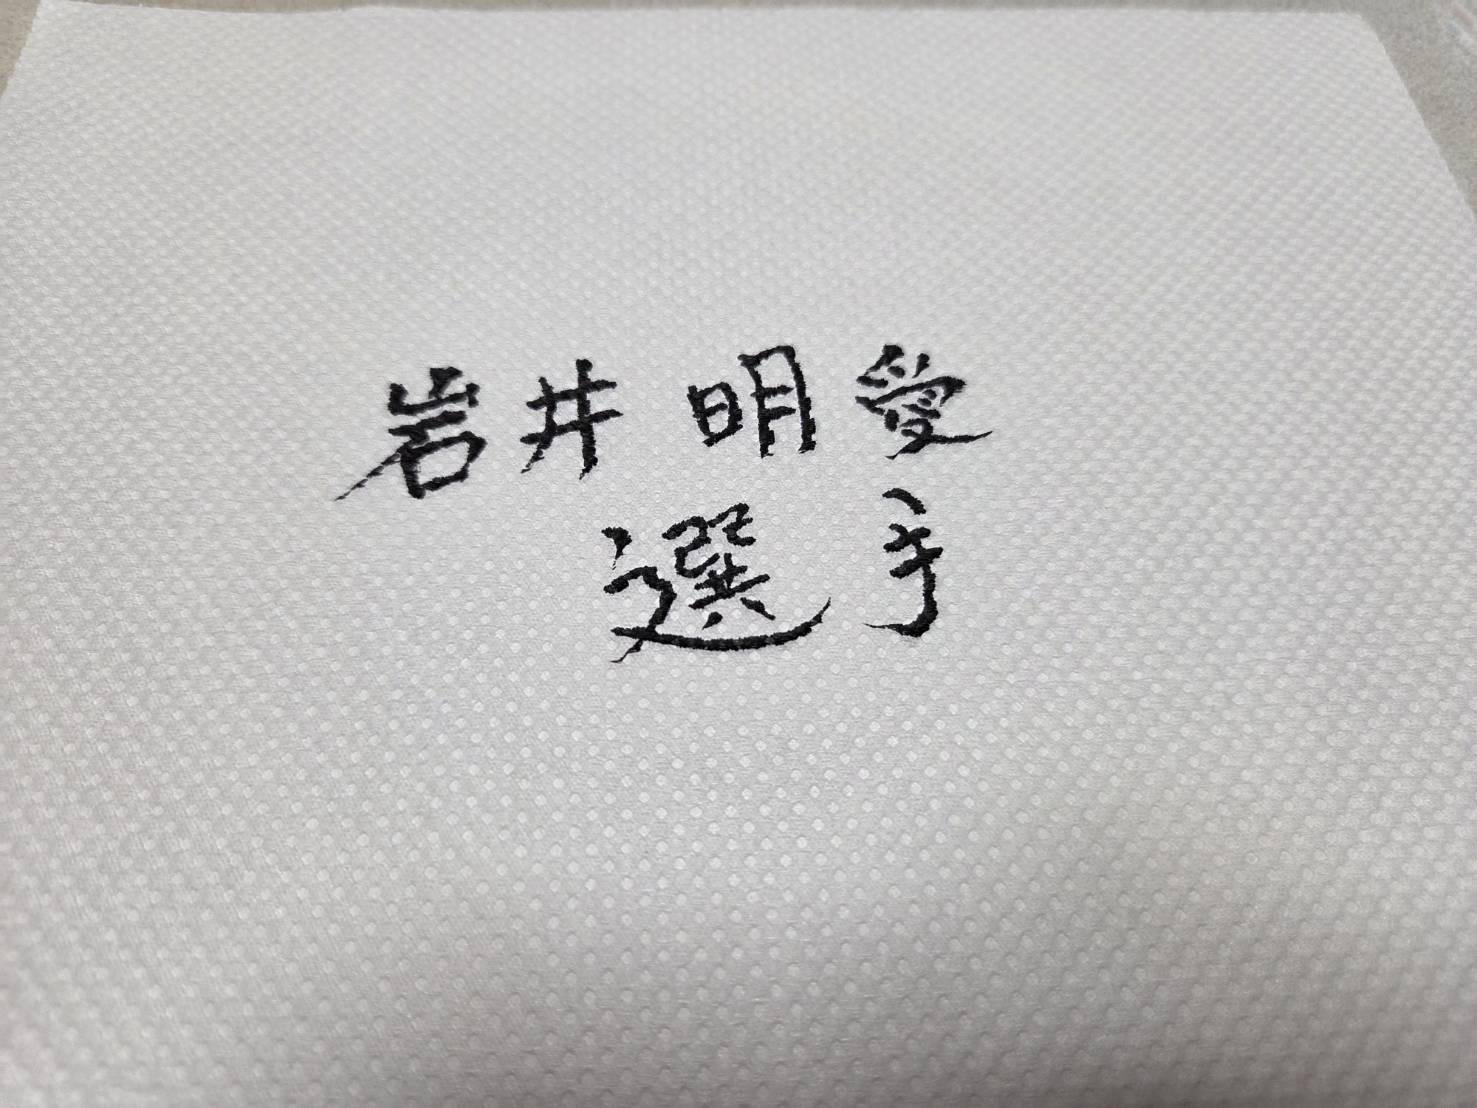 岩井明愛
選手